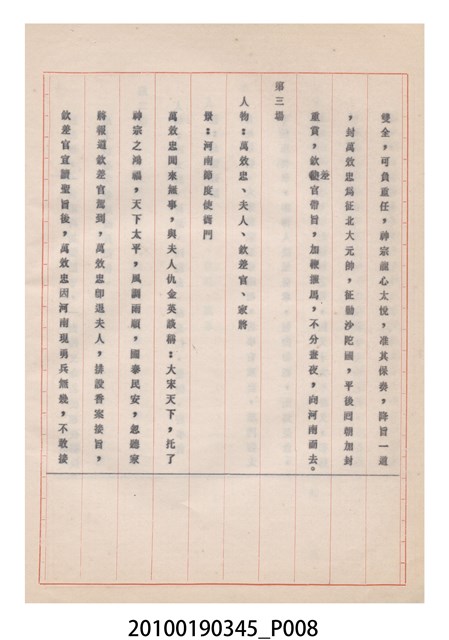 雙全，可負重任，神宗龍心大悅，准其保奏，降旨一道
，封萬效忠為征北大元帥，征勦沙陀國，平後囘朝加封
重賞，欽差官帶旨，加鞭催馬，不分晝夜，向河南而去。
第三場
人物：萬效忠、夫人、欽差官、家將
景：河南節度使衙門
萬效忠閒來無事，與夫人仇金英談稱：大宋天下，托了
神宗之鴻福，天下太平，風調雨順，國泰民安，忽聽家
將報道欽差官駕到，萬效忠卽退夫人，排設香案接旨，
欽差官宣讀聖旨後，萬效忠因河南現勇兵無幾，不敢接
20100190345_P008